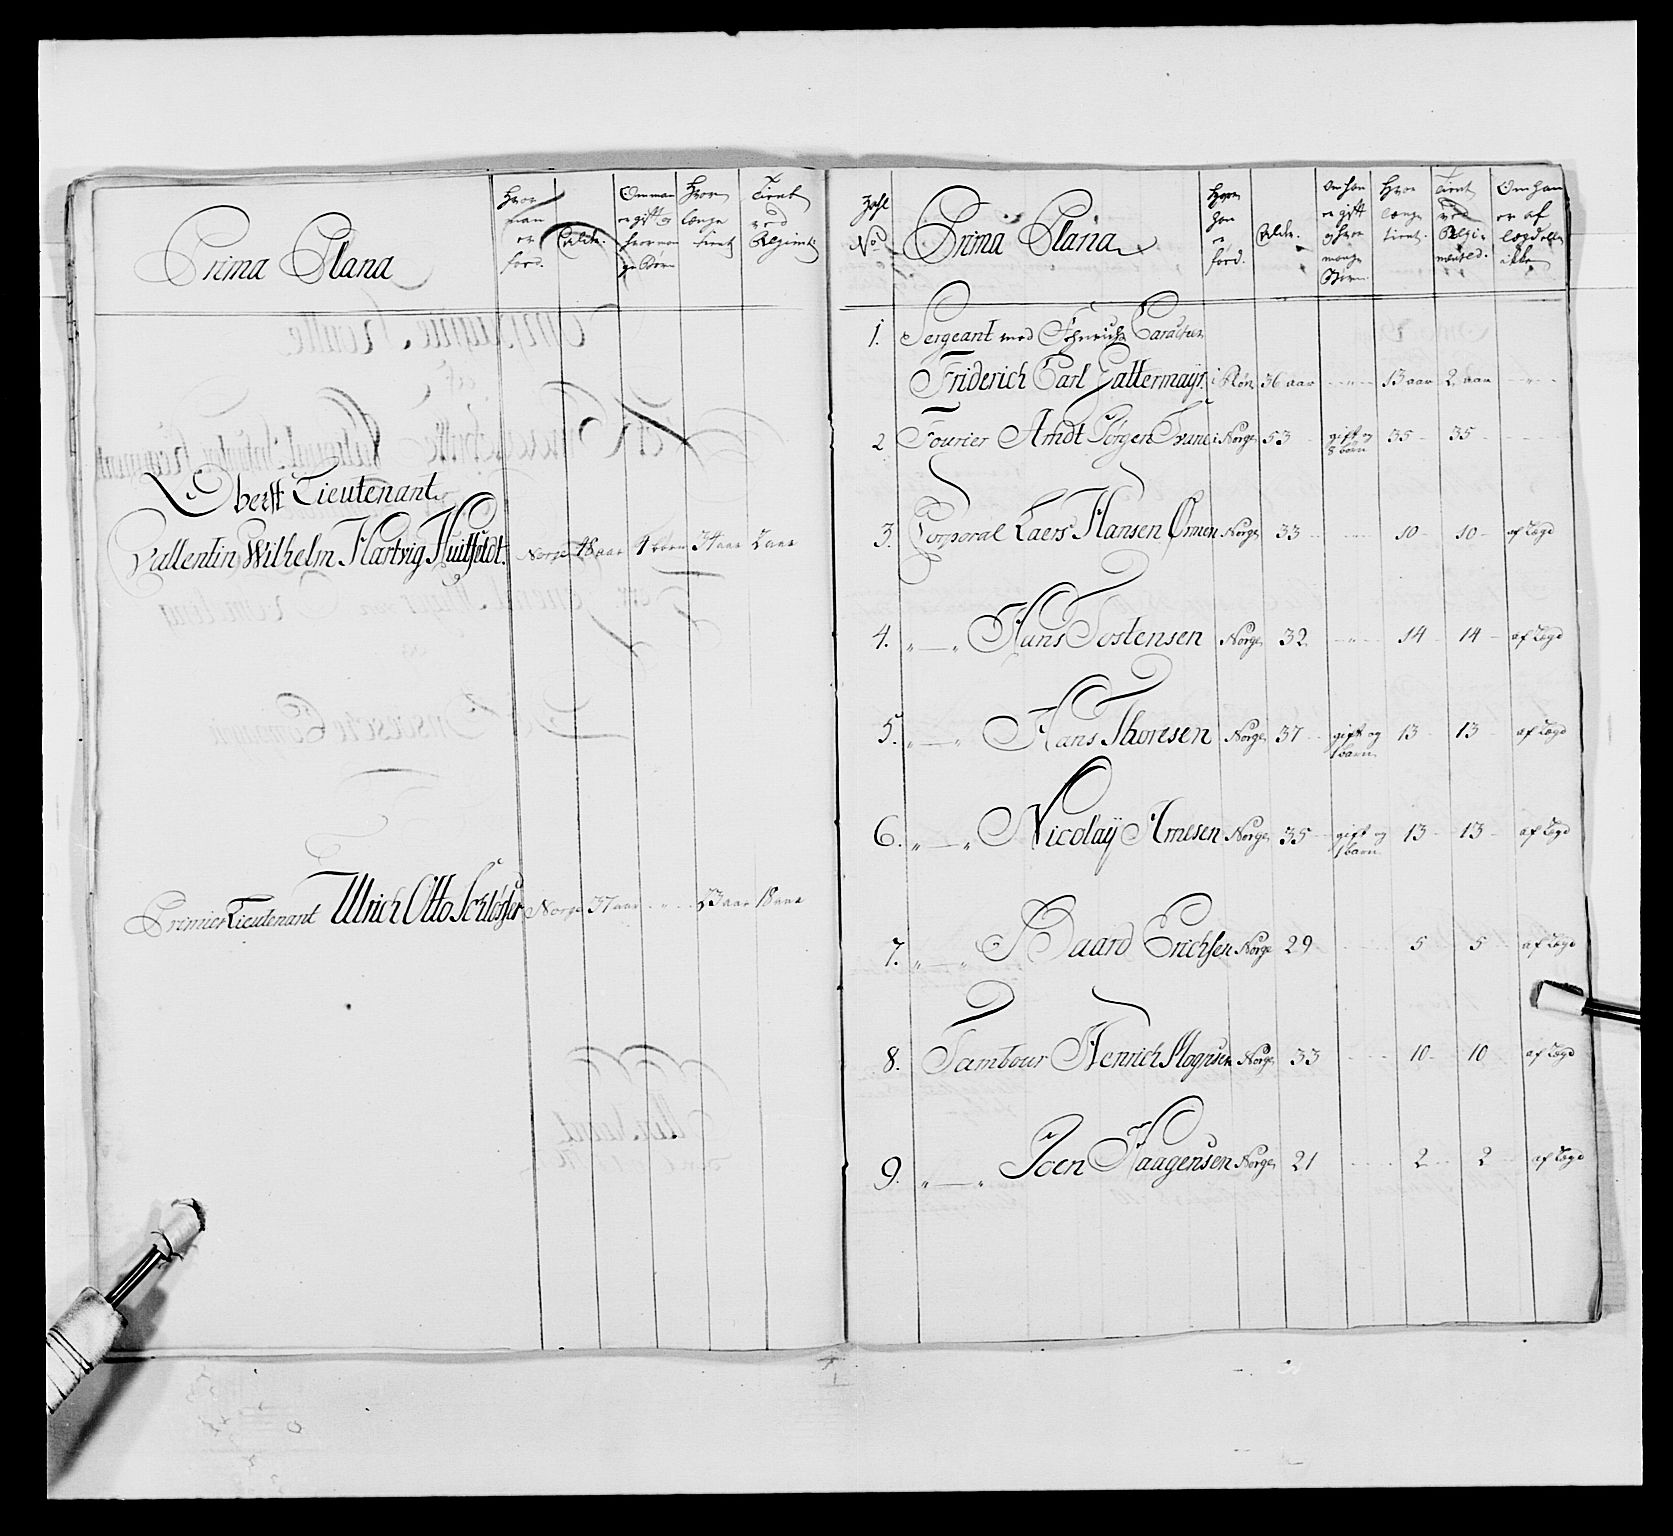 Prima Plana
Hvor man er fød.
Alder.
Om man er gift og hvor mange Børn
Hvor længe tient
Tient ved Regimentet
Oberst Lieutenant
Vallentin Wilhelm Hartvig Huitfeldt. Norge 48 aar 4 børn 34 aar 2 aar
Primier Lieutenant Ulrich Otto Schløsser Norge 37 aar " 23 aar 18 aar
Zahl No
Prima Plana
Hvor han er fød.
Alder.
Om han er gift og hvor mange Børn
Hvor længe tient.
Tient ved Regimented.
Om han er af lægd eller ikke
1. Sergeant med Fendrichs Caracteer
Friderich Carl Gattermayr 36 aar " 13 aar 2 aar "
2 Fourier Arndt Jørgen Norge 53 gift og 8 børn 35 35
3. Corporal Laers Hansen Ørmen Norge 33 10 10 af Lægd
4. " — " Hans Tostensen Norge 32 " 14 14 af Lægd
5. " — " Hans Thoresen Norge 37 gift og 1 barn 13 13 af Lægd
6. " — " Nicolaÿ Arnesen Norge 35 gift og 1 barn 13 13 af Lægd
7. " — " Baard Erichsen Norge 29 5 5 af Lægd
8. Tambour Henrich Mognsen Norge 33 10 10 af Lægd
9. " — " Joen Haagensen Norge 21 2 2 af Lægd